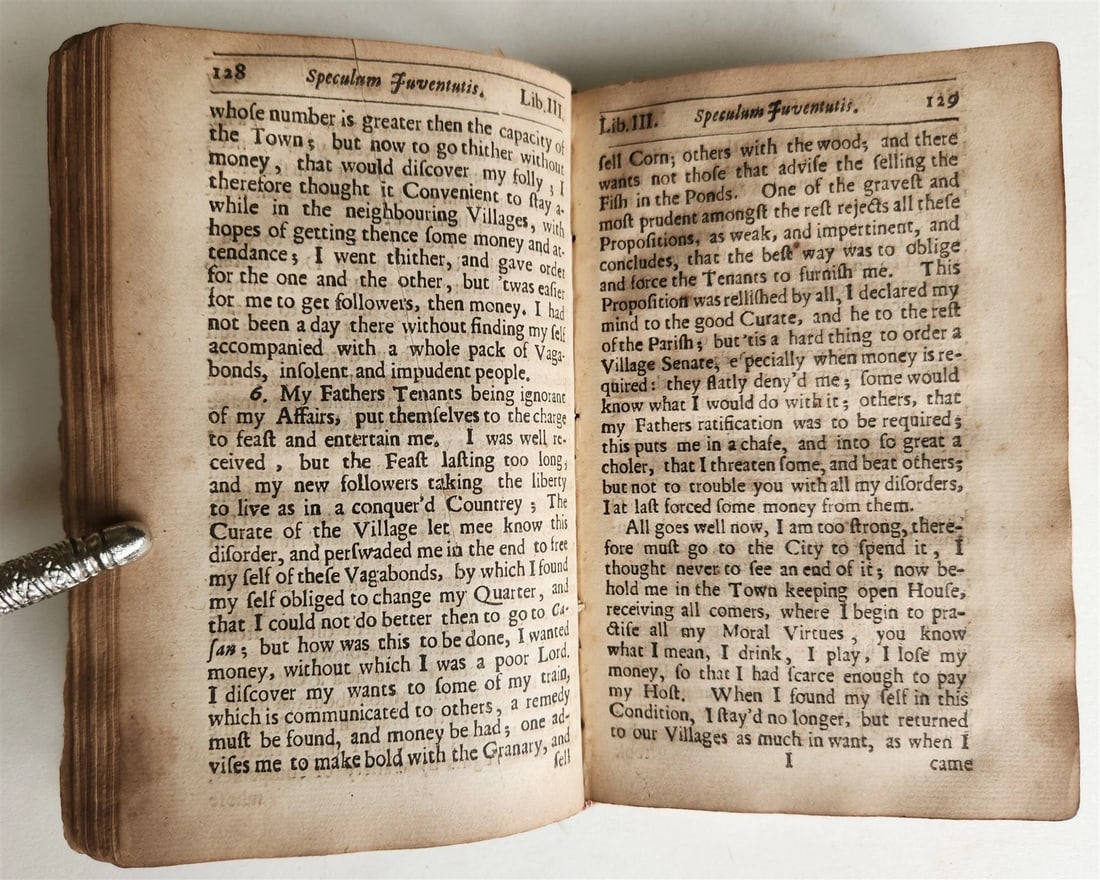 128 Speculum Juventutis. Lib.III.
whoſe number is greater then the capacity of
the Town; but now to go thither without
money, that would diſcover my folly; I
therefore thought it Convenient to ſtay a-
while in the neighbouring Villages, with
hopes of getting thence ſome money and at-
tendance; I went thither, and gave order
for the one and the other, but 'twas eaſier
for me to get followers, then money. I had
not been a day there without finding my ſelf
accompanied with a whole pack of Vaga-
bonds, inſolent and impudent people.
6. My Fathers Tenants being ignorant
of my Affairs, put themſelves to the charge
to feaſt and entertain me. I was well re-
ceived, but the Feaſt laſting too long,
and my new followers taking the liberty
to live as in a conquer'd Countrey; The
Curate of the Village let mee know this
diſorder, and perſwaded me in the end to free
my ſelf of theſe Vagabonds, by which I found
my ſelf obliged to change my Quarter, and
that I could not do better then to go to Ca-
ſan; but how was this to be done, I wanted
money, without which I was a poor Lord.
I diſcover my wants to ſome of my train,
which is communicated to others, a remedy
muſt be found, and money be had; one ad-
viſes me to make bold with the Granary, and
ſell
Lib.III. Speculum Juventutis. 129
ſell Corn; others with the wood; and there
wants not thoſe that adviſe the ſelling the
Fiſh in the Ponds. One of the graveſt and
moſt prudent amongſt the reſt rejects all theſe
Propoſitions, as weak, and impertinent, and
concludes, that the beſt way was to oblige
and force the Tenants to furniſh me. This
Propoſition was relliſhed by all, I declared my
mind to the good Curate, and he to the reſt
of the Pariſh; but 'tis a hard thing to order a
Village Senate, eſpecially when money is re-
quired: they flatly deny'd me; ſome would
know what I would do with it; others, that
my Fathers ratification was to be required;
this puts me in a chafe, and into ſo great a
choler, that I threaten ſome, and beat others;
but not to trouble you with all my diſorders,
I at laſt forced ſome money from them.
All goes well now, I am too ſtrong, there-
fore muſt go to the City to ſpend it, I
thought never to ſee an end of it; now be-
hold me in the Town keeping open Houſe,
receiving all comers, where I begin to pra-
ctiſe all my Moral Virtues, you know
what I mean, I drink, I play, I loſe my
money, ſo that I had ſcarce enough to pay
my Hoſt. When I found my ſelf in this
Condition, I ſtay'd no longer, but returned
to our Villages as much in want, as when I
I came